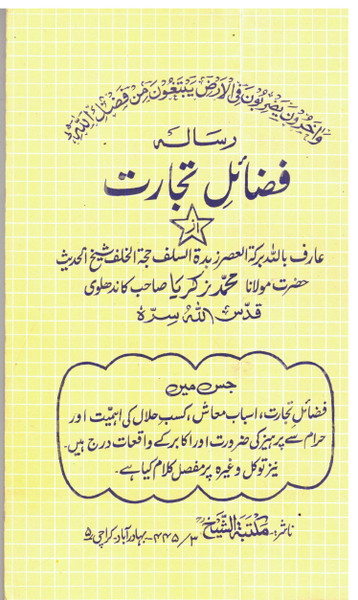 وَاٰخَرُوْنَ يَضْرِبُوْنَ فِي الْاَرْضِ يَبْتَغُوْنَ مِنْ فَضْلِ اللّٰهِ
رسالہ
فضائلِ تجارت
از
عارف باللہ برکۃ العصر زبدۃ السلف حجۃ الخلف شیخ الحدیث
حضرت مولانا محمد زکریا صاحب کاندھلوی
قدّس اللہ سرہٗ
جس میں
فضائلِ تجارت، اسباب معاش، کسبِ حلال کی اہمیّت اور
حرام سے پرہیز کی ضرورت اور اکابر کے واقعات درج ہیں۔
نیز توکل وغیرہ پر مفصل کلام کیا ہے۔
ناشر:۔ مکتبۃ الشیخ ۳/۴۴۵۔ بہادر آباد۔ کراچی ۵